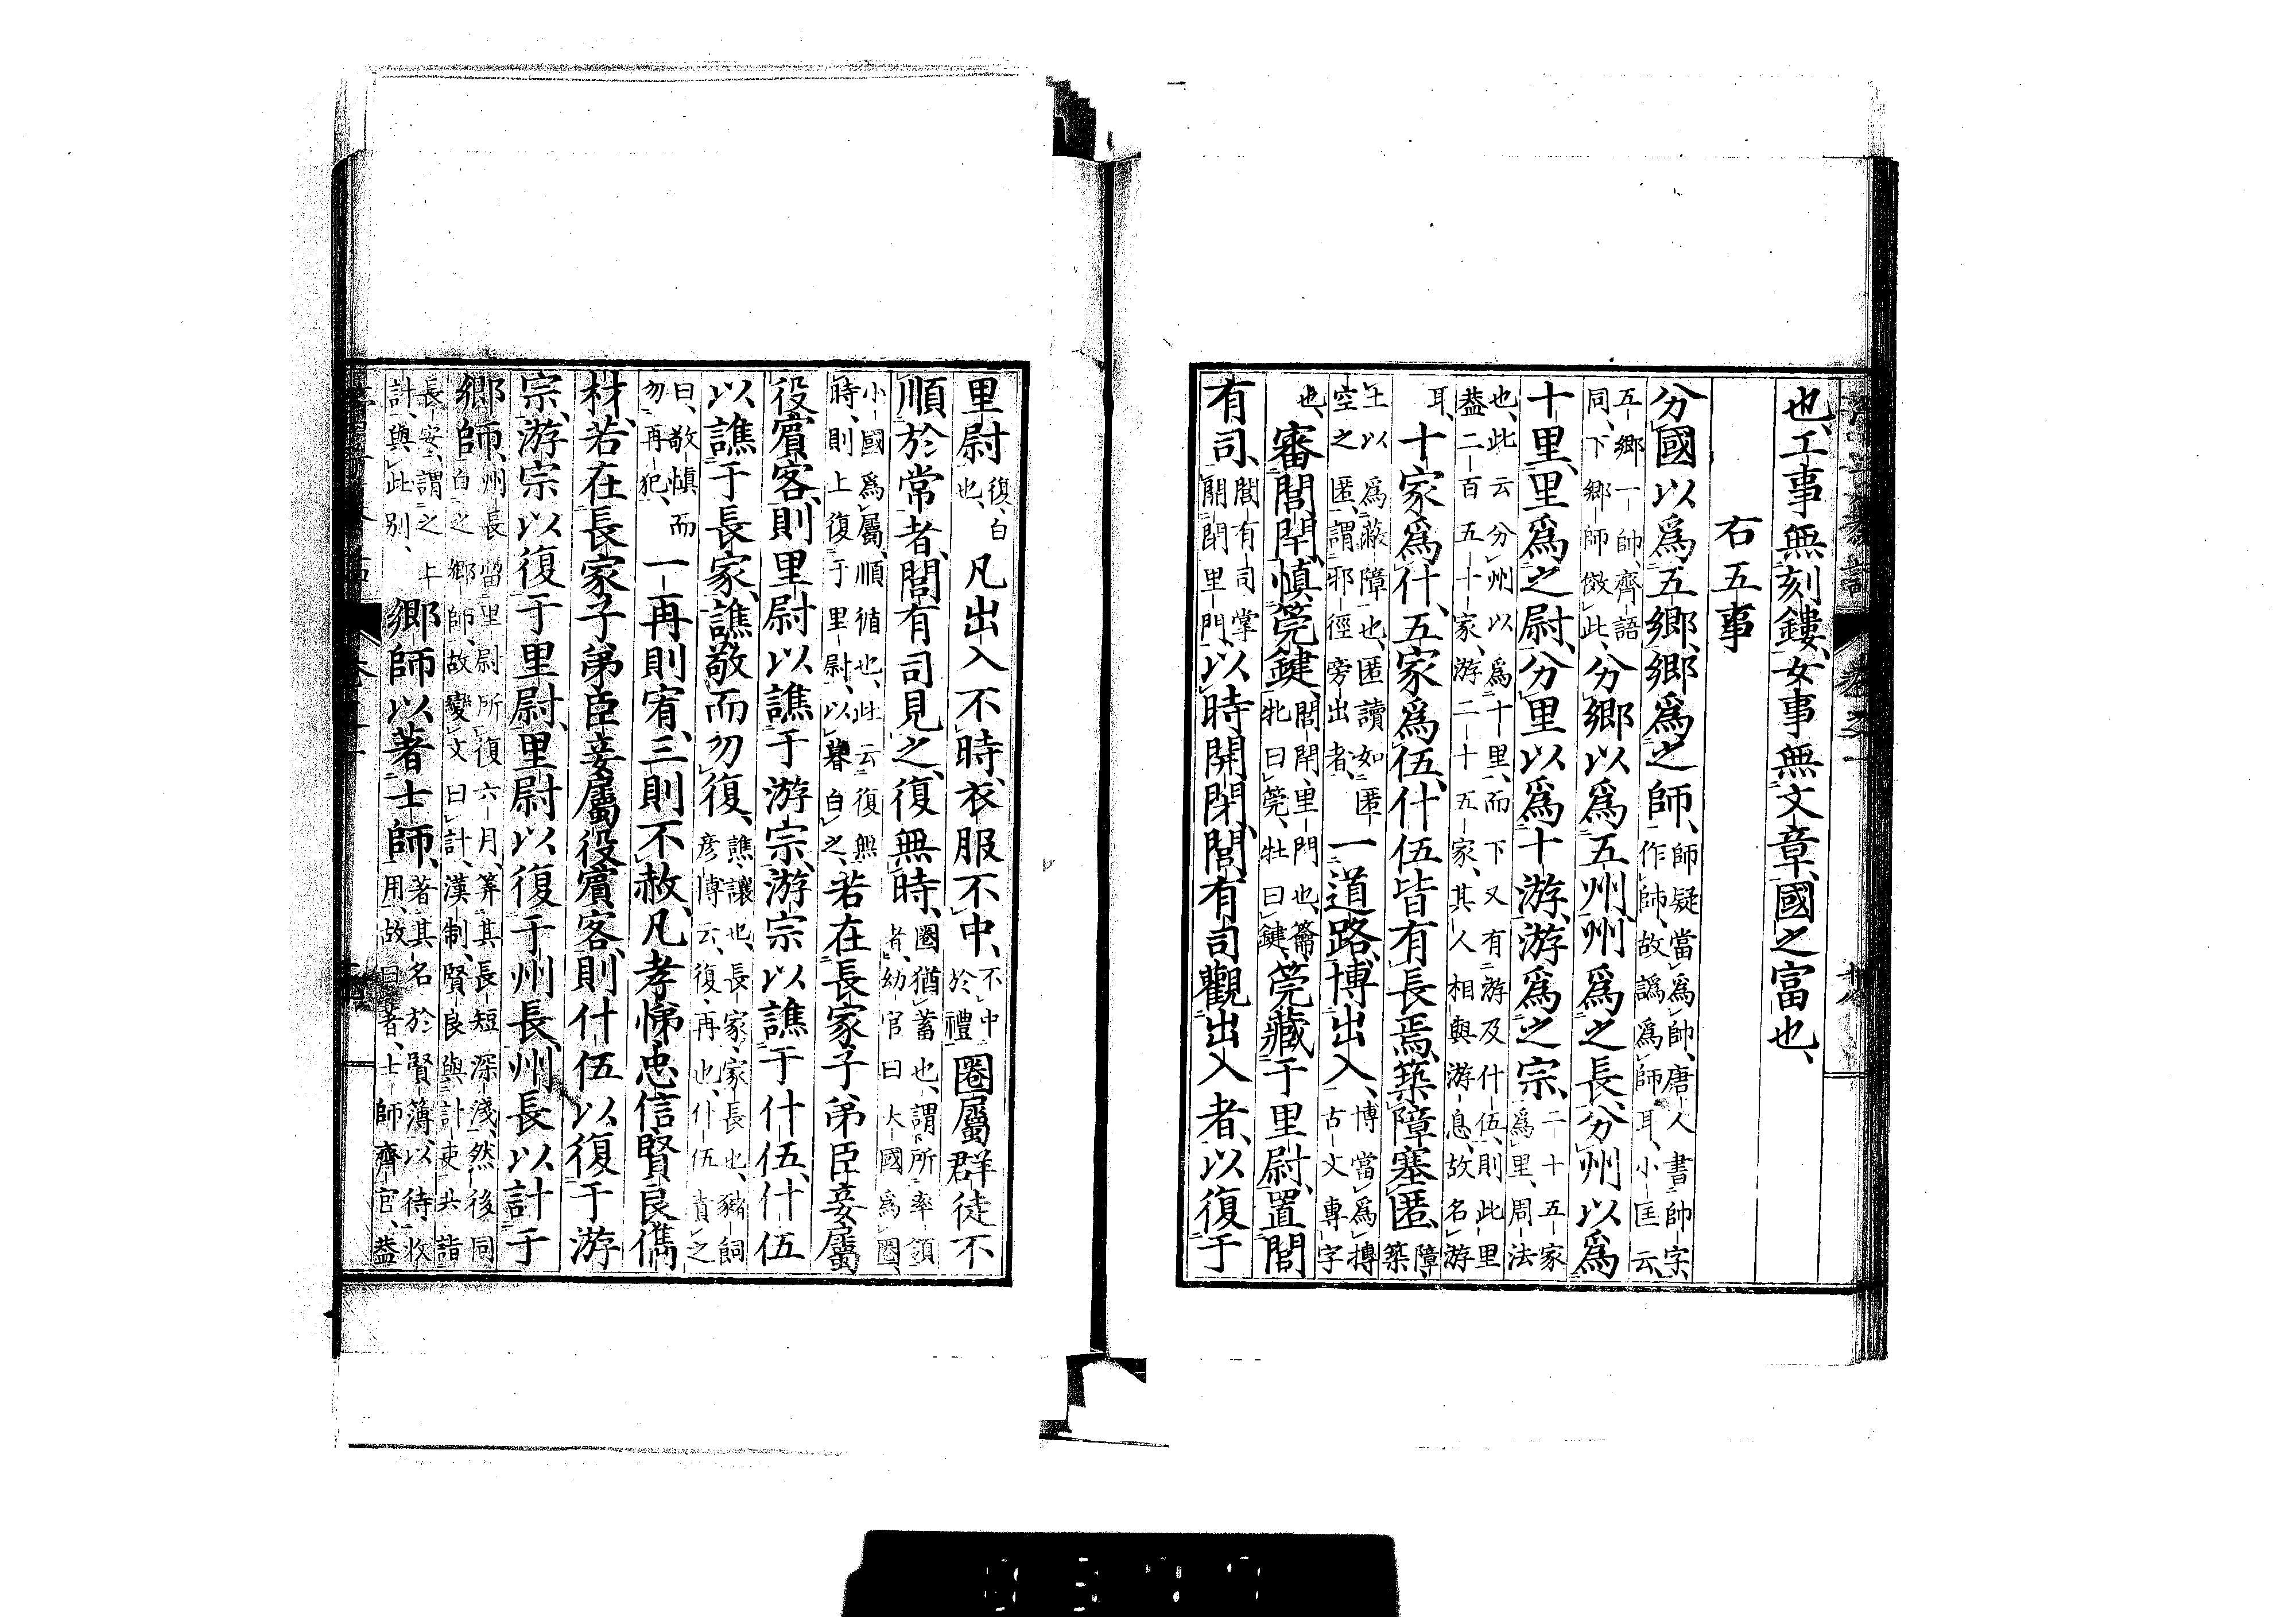 也、工事無刻鏤、女事無文章、國之富也、
右五事
分國以爲五鄉、鄉爲之師、師疑當爲帥、唐人書帥字、作師、故譌爲師耳、小匡云、
五鄉一帥、齊語同、下鄉師倣此、分鄉以爲五州、州爲之長、分州以爲
十里、里爲之尉、分里以爲十游、游爲之宗、二十五家爲里、周法
也、此云分州以爲十里、而下又有游及什伍、則此里蓋二百五十家、游二十五家、其人相與游息、故名游
耳、十家爲什、五家爲伍、什伍皆有長焉、築障塞匿、障築
土以爲蔽障也、匿讀如匿空之匿、謂邪徑旁出者、一道路、博出入、博當爲摶、古文專字
也、審閭閈、慎筦鍵、閭閈、里門也、籥牝曰筦、牡曰鍵、筦藏于里尉、置閭
有司、閭有司掌開閉里門、以時開閉、閭有司觀出入者、以復于
里尉、復、白也、凡出入不時、衣服不中、不中於禮圈屬群徒、不
順於常者、閭有司見之、復無時、圈猶蓄也、謂所率領者、幼官曰大國爲圈、
小國爲屬、順循也、此云復無時、則上復于里尉、以暮白之、若在長家子弟臣妾屬
役賓客、則里尉以譙于游宗、游宗以譙于什伍、什伍
以譙于長家、譙敬而勿復、譙讓也、長家、家長也、豬飼彥博云、復、再也、什伍責之
曰、敬慎而勿再犯、一再則宥、三則不赦、凡孝悌忠信、賢良儁
材、若在長家子弟臣妾屬役賓客、則什伍以復于游
宗、游宗以復于里尉、里尉以復于州長、州長以計于
鄉師、州長當里尉所復六月、筭其長短深淺、然後同白之鄉師、故變文曰計、漢制、賢良與計吏共詣
長安、謂之上計、與此別、鄉師以著士師、著其名於賢簿、以待收用、故曰著、士師齊官、蓋